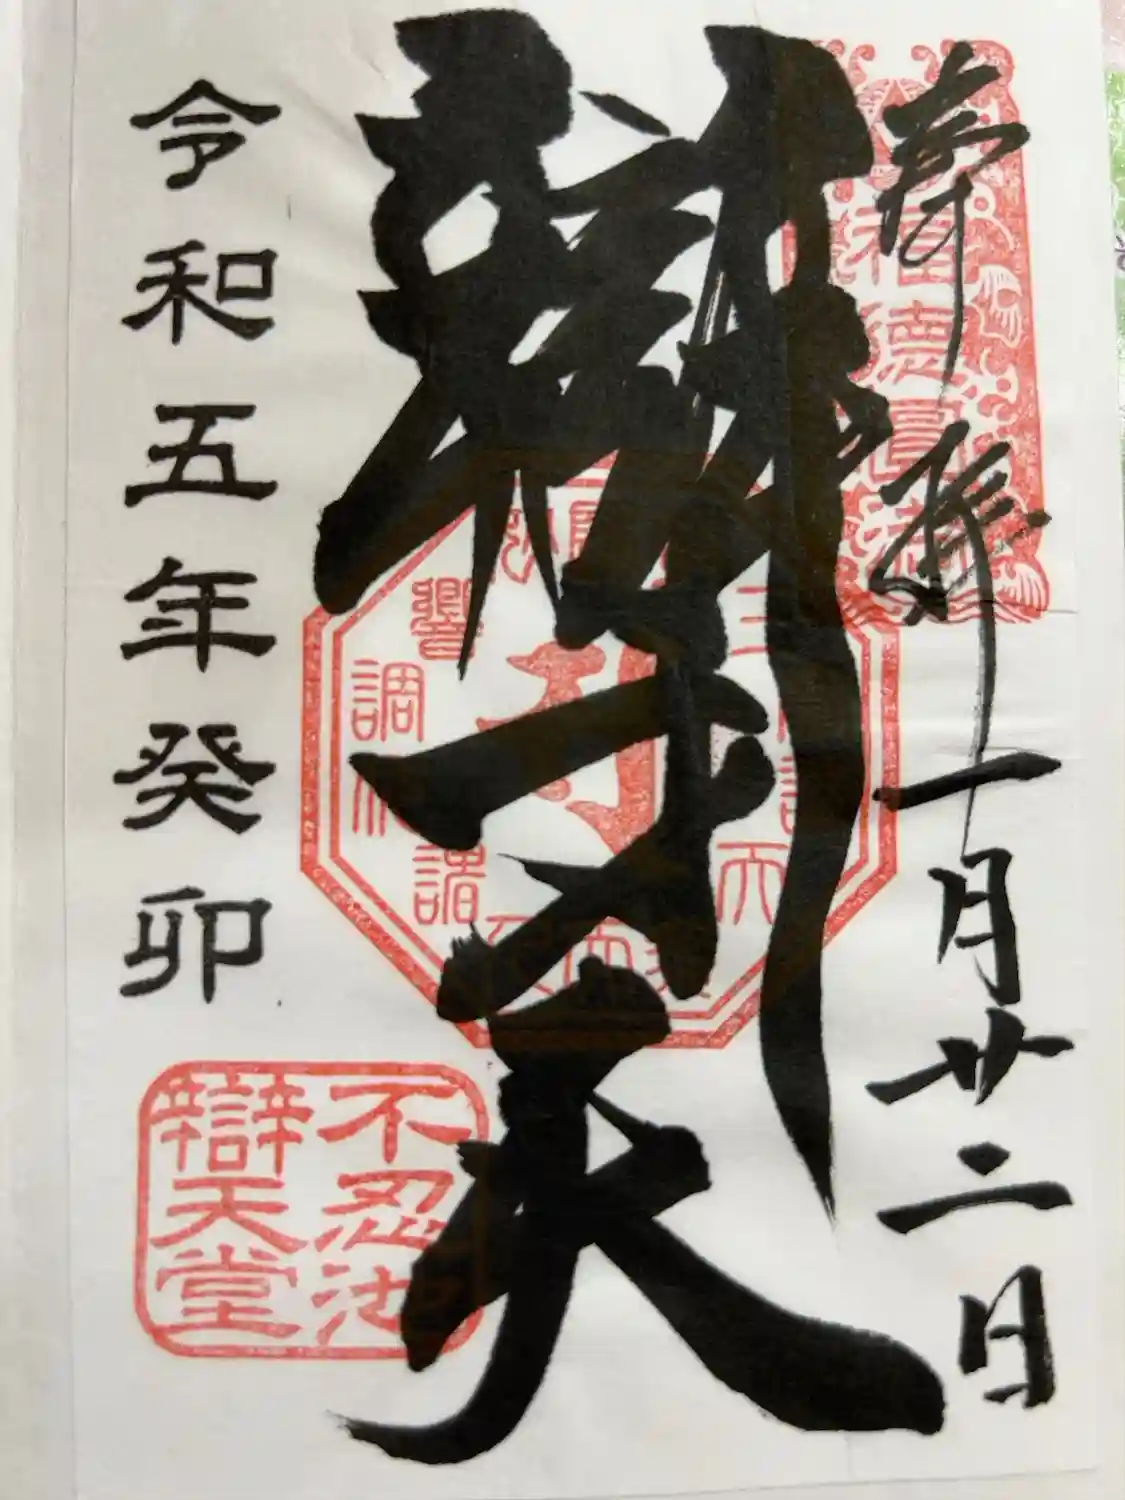 奉拝
一月廿二日
辯才天
令和五年癸卯
不忍池
辯天堂
福德圓滿